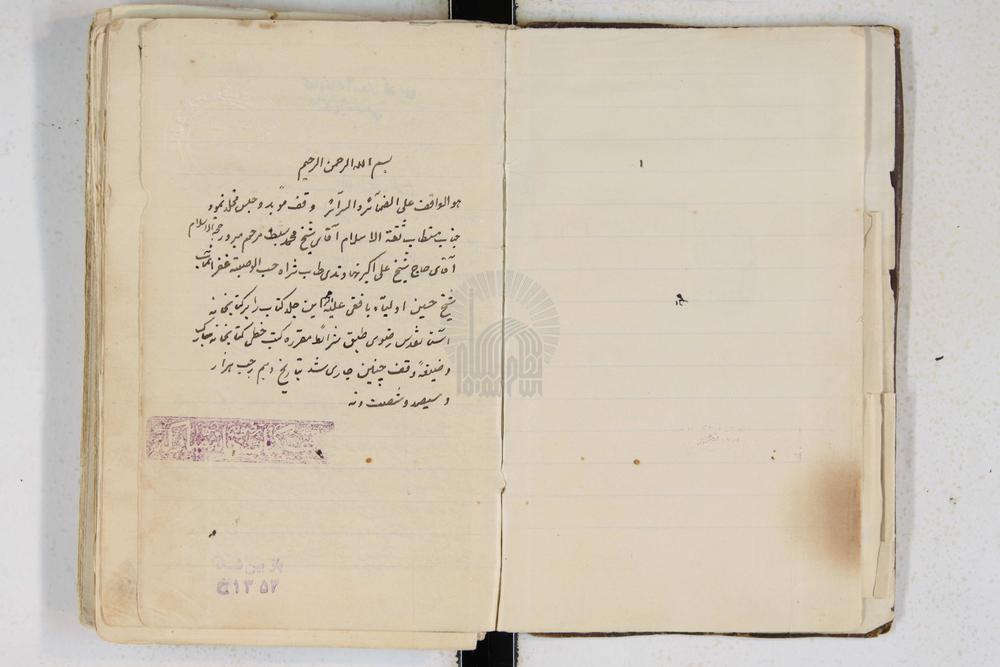 بسم الله الرحمن الرحیم
هو الواقف علی الضمائر والسرائر وقف مؤبد و حبس مخلد نمود
جناب مستطاب ثقة الاسلام آقای شیخ محمد سبط مرحوم مبرور حجة الاسلام
آقای حاج شیخ علی اکبر نهاوندی طاب ثراه حسب الوصیة
شیخ حسین اولیاء بافقی این جلد کتاب را بر کتابخانه
آستانقدس رضوی طبق شرائط مقرره کتب خطی کتابخانه مبارکه
و صیغهٔ وقف چنین جاری شد بتاریخ دهم رجب هزار
و سیصد و شصت و نه
باز بین شد
۱۳۵۲ خ
۱